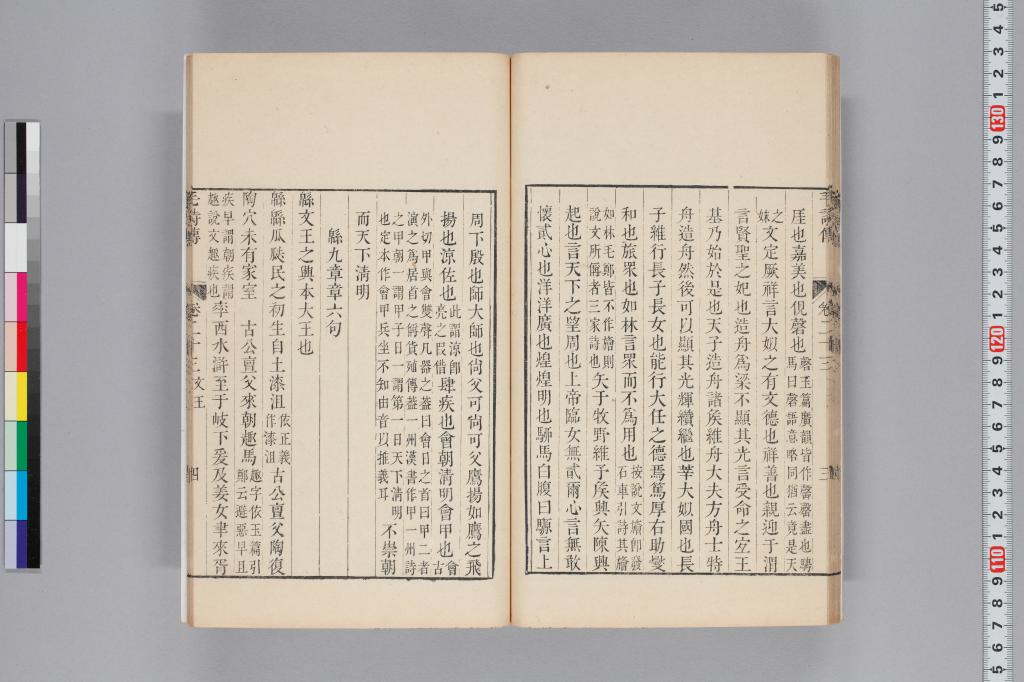 厓也嘉美也俔磬也磬玉篇廣韻皆作罄罄盡也
馬曰磬譬意略同猶云竟是天
之妹文定厥祥言大姒之有文德也祥善也親迎于渭
言賢聖之妃也造舟爲梁不顯其光言受命之宐王
基乃始於是也天子造舟諸矦維舟大夫方舟士特
舟造舟然後可㠯顯其光輝纘繼也莘大姒國也長
子維行長子長女也能行大任之德焉篤厚右助燮
和也旅眾也如林言眾而不爲用也按說文旝卽發
石車引詩其旝
如林毛鄭皆不作旝則
說文所偁者三家詩也矢于牧野維予矦興矢陳興
起也言天下之望周也上帝臨女無貳爾心言無敢
懷貳心也洋洋廣也煌煌明也駵馬白腹曰騵言上
周下殷也師大師也尙父可尙可父鷹揚如鷹之飛
揚也涼佐也此謂涼卽
亮之叚借肆疾也會朝淸明會甲也會古
外切甲與會雙聲凡器之葢曰會日之首曰甲二者
演之爲居首之偁貨殖傳葢一州漢書作甲一州詩
之甲朝一謂甲子日一謂第一日天下淸明
也定本作會甲兵坐不知由音㠯推義耳不崇朝
而天下淸明
緜九章章六句
緜文王之興本大王也
緜緜瓜瓞民之初生自土漆沮依正義
作漆沮古公亶父陶復
陶穴未有家室 古公亶父來朝趣馬趣字依玉篇引
鄭云避惡早且
疾早謂朝疾謂
趣說文趣疾也率西水滸至于岐下爰及姜女聿來胥
毛詩傳 卷二十三 文王 四